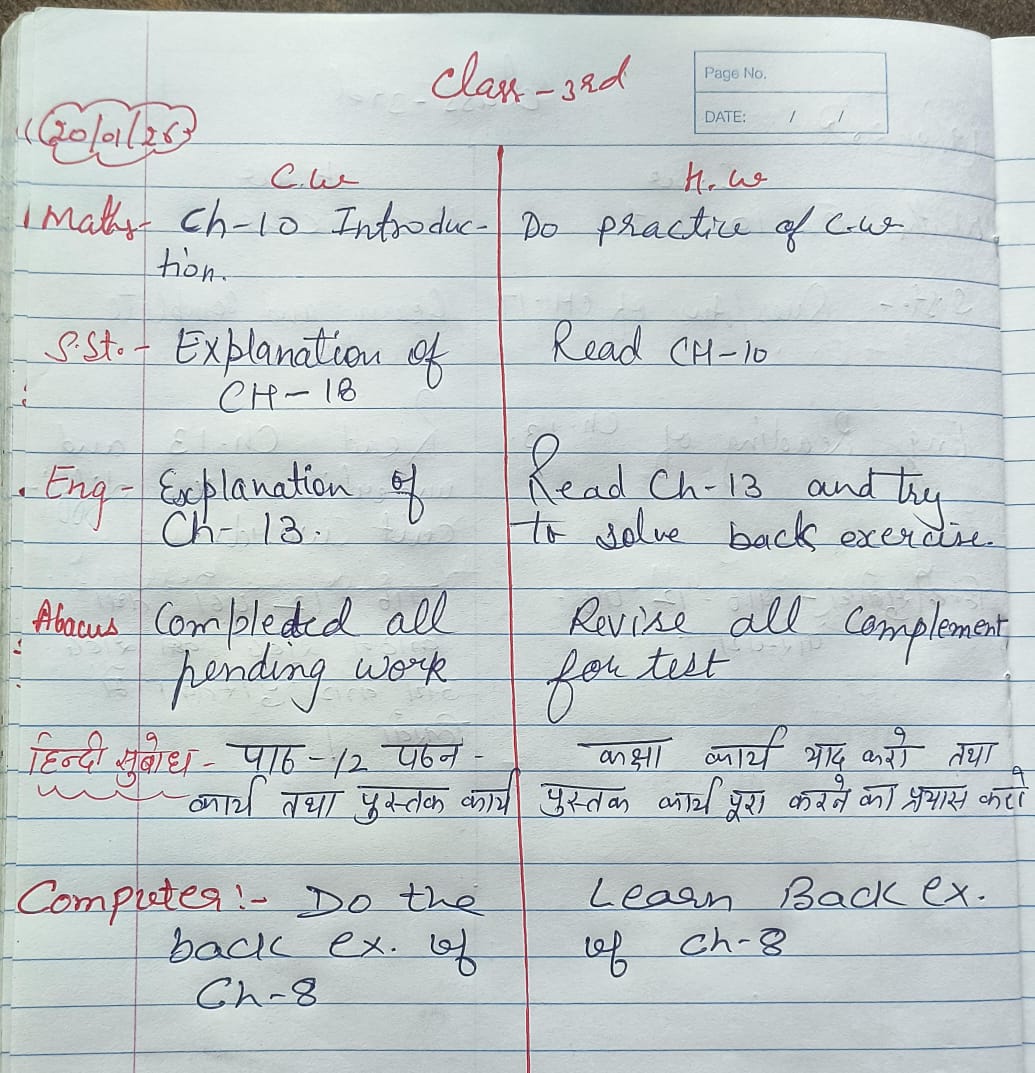 Class - 3rd
Page No.
DATE: / /
20/01/26
C.W
H.W
Maths - Ch-10 Introduc-
tion.
Do practice of C.W
S.St. - Explanation of
CH - 18
Read CH-10
Eng - Explanation of
Ch - 13.
Read Ch-13 and try
to solve back exercise.
Abacus Completed all
pending work
Revise all Complement
for test
हिन्दी सुबोध - पाठ - 12 पठन -
कार्य तथा पुस्तक कार्य
कक्षा कार्य याद करो तथा
पुस्तक कार्य पूरा करने का प्रयास करो
Computer :- Do the
back ex. of
Ch-8
Learn Back ex.
of ch-8